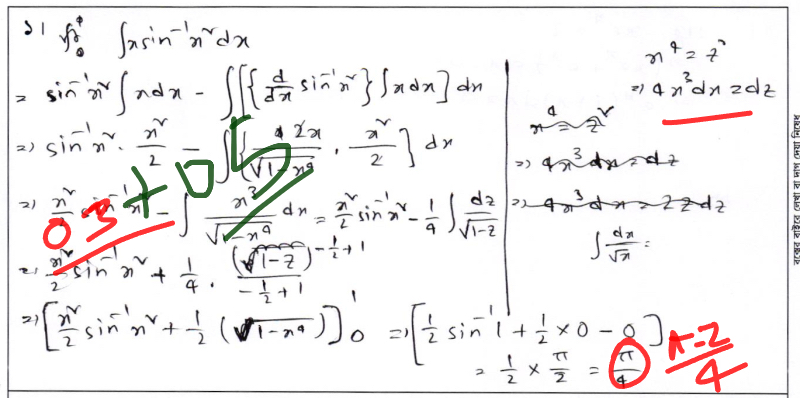 ১। ∫x sin⁻¹x² dx
= sin⁻¹x² ∫x dx - ∫[{d/dx sin⁻¹x²} ∫x dx] dx
=> sin⁻¹x² · x²/2 - ∫{2x/√(1-x⁴) · x²/2} dx
=> x²/2 sin⁻¹x² - ∫ x³/√(1-x⁴) dx = x²/2 sin⁻¹x² - 1/4 ∫ dz/√(1-z)
=> x²/2 sin⁻¹x² + 1/4 · (√(1-z))^(-1/2+1) / (-1/2+1)
=> [x²/2 sin⁻¹x² + 1/2 (√(1-x⁴))]₀¹ => [1/2 sin⁻¹1 + 1/2 × 0 - 0]
= 1/2 × π/2 = π/4
π-2/4
03+05
x⁴ = z
=> 4x³dx = dz
x⁴ = z²
=> 4x³dx = dz
=> 4x³dx = 2z dz
∫ dx/√x =